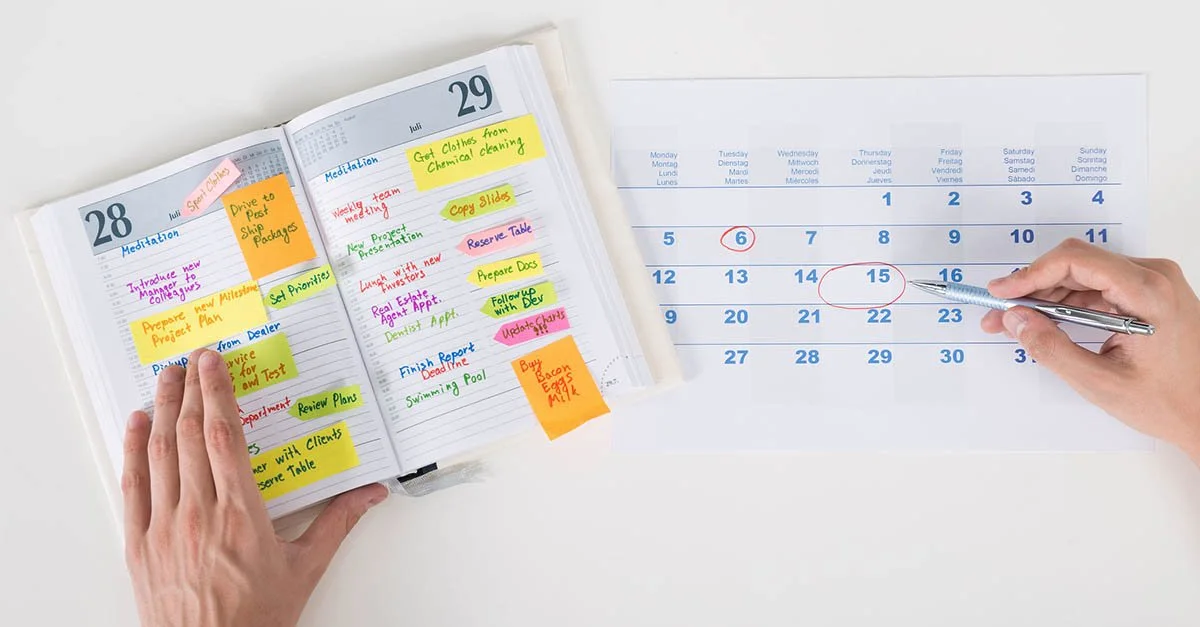 28
Juli
Sport Clothes
Meditation
Drive to
Post
Ship
Packages
Introduce new
Manager to
colleagues
Set Priorities
Prepare new Milestone
Project Plan
from Dealer
for
and Test
Department
Review Plans
with Clients
Table
29
Juli
Meditation
Get Clothes from
Chemical cleaning
Weekly team
meeting
Copy Slides
New Project
Presentation
Reserve Table
Lunch with new
Investors
Prepare Docs
Real Estate
Agent Appt.
Followup
with Dev
Dentist Appt.
Update Charts
Finish Report
Deadline
Swimming Pool
Buy
Bacon
Eggs
Milk
Monday Tuesday Wednesday Thursday Friday Saturday Sunday
Montag Dienstag Mittwoch Donnerstag Freitag Samstag Sonntag
Lundi Mardi Mercredi Jeudi Vendredi Samedi Dimanche
Lunes Martes Miércoles Jueves Viernes Sábado Domingo
1 2 3 4
5 6 7 8 9 10 11
12 13 14 15 16
20 21 22 23
27 28 29 30